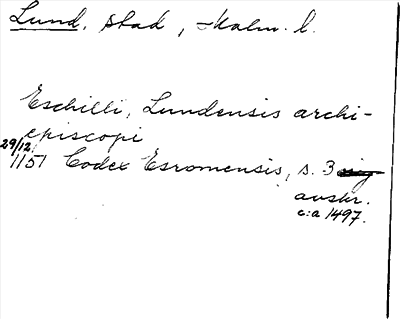 Lund, stad, Malm. l.
Eschilli, Lundensis archi-
episcopi
29/12
1151 Codex Esromensis, s. 3
avskr.
c:a 1497.